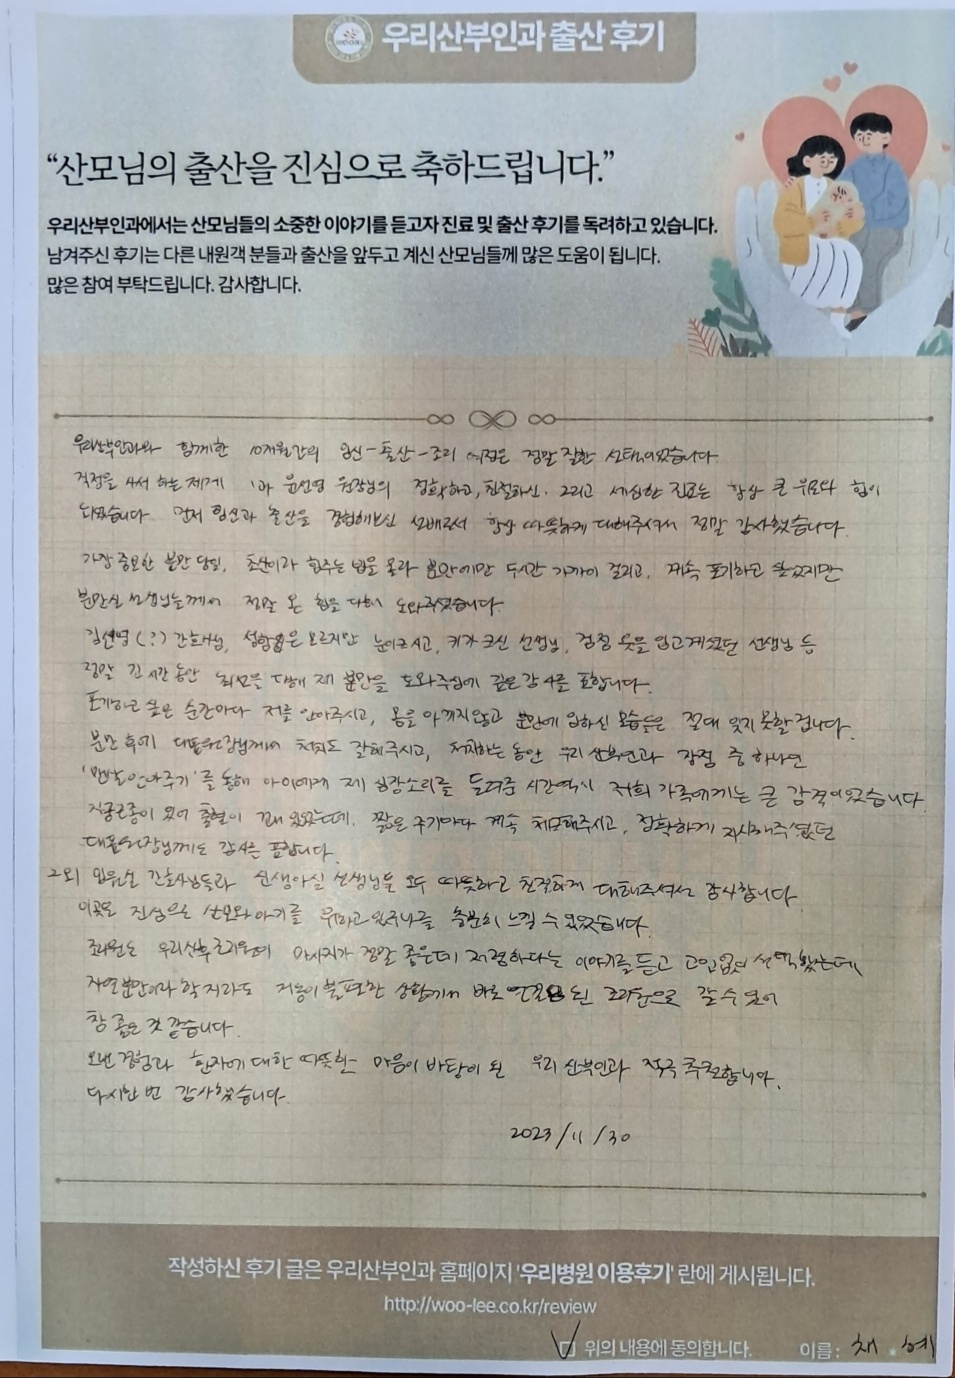 우리산부인과 출산 후기
“산모님의 출산을 진심으로 축하드립니다.”
우리산부인과에서는 산모님들의 소중한 이야기를 듣고자 진료 및 출산 후기를 독려하고 있습니다.
남겨주신 후기는 다른 내원객 분들과 출산을 앞두고 계신 산모님들께 많은 도움이 됩니다.
많은 참여 부탁드립니다. 감사합니다.
우리산부인과와 함께한 10개월간의 임신-출산-조리 여정은 정말 잘한 선택이었습니다
걱정을 사서 하는 제게 1과 윤선영 원장님의 정확하고, 친절하신. 그리고 세심한 진료는 항상 큰 위로와 힘이
되었습니다 먼저 임신과 출산을 경험해보신 선배로서 항상 따뜻하게 대해주셔서 정말 감사했습니다.
가장 중요한 분만 당일, 초산이라 힘주는 법을 몰라 분만에만 두시간 가까이 걸리고, 계속 포기하고 싶었지만
분만실 선생님들께서 정말 온 힘을 다해 도와주셨습니다.
김선영(?) 간호사님, 성함은 모르지만 눈이크시고, 키가 크신 선생님, 검정 옷을 입고계셨던 선생님 등
정말 긴 시간 동안 최선을 다해 제 분만을 도와주심에 깊은 감사를 표합니다.
포기하고 싶은 순간마다 저를 안아주시고, 몸을 아끼지않고 분만에 임하신 모습들은 절대 잊지 못할 겁니다.
분만 후에 대표원장님께서 처치도 잘해주시고, 처치하는 동안 우리 산부인과 장점 중 하나인
'맨발안아주기'를 통해 아이에게 제 심장소리를 들려준 시간역시 저희 가족에게는 큰 감격이었습니다.
자궁근종이 있어 출혈이 꽤 있었는데. 짧은 주기마다 계속 체크해주시고, 정확하게 지시해주셨던
대표원장님께도 감사를 표합니다.
그외 입원실 간호사님들과 신생아실 선생님들 모두 따뜻하고 친절하게 대해주셔서 감사합니다.
이곳은 진심으로 산모와 아기를 위하고 있구나를 충분히 느낄 수 있었습니다.
조리원도 우리산후조리원이 마사지가 정말 좋은데 저렴하다는 이야기를 듣고 고민없이 선택했는데,
자연분만이라 할지라도 거동이 불편한 상황에서 바로 연결 된 조리원으로 갈 수 있어
참 좋은 것 같습니다.
오랜 경험과 환자에 대한 따뜻한 마음이 바탕이 된 우리 산부인과 적극 추천합니다.
다시한번 감사했습니다.
2023/11/30
작성하신 후기 글은 우리산부인과 홈페이지 '우리병원 이용후기' 란에 게시됩니다.
http://woo-lee.co.kr/review
위의 내용에 동의합니다. 이름 : 채 예